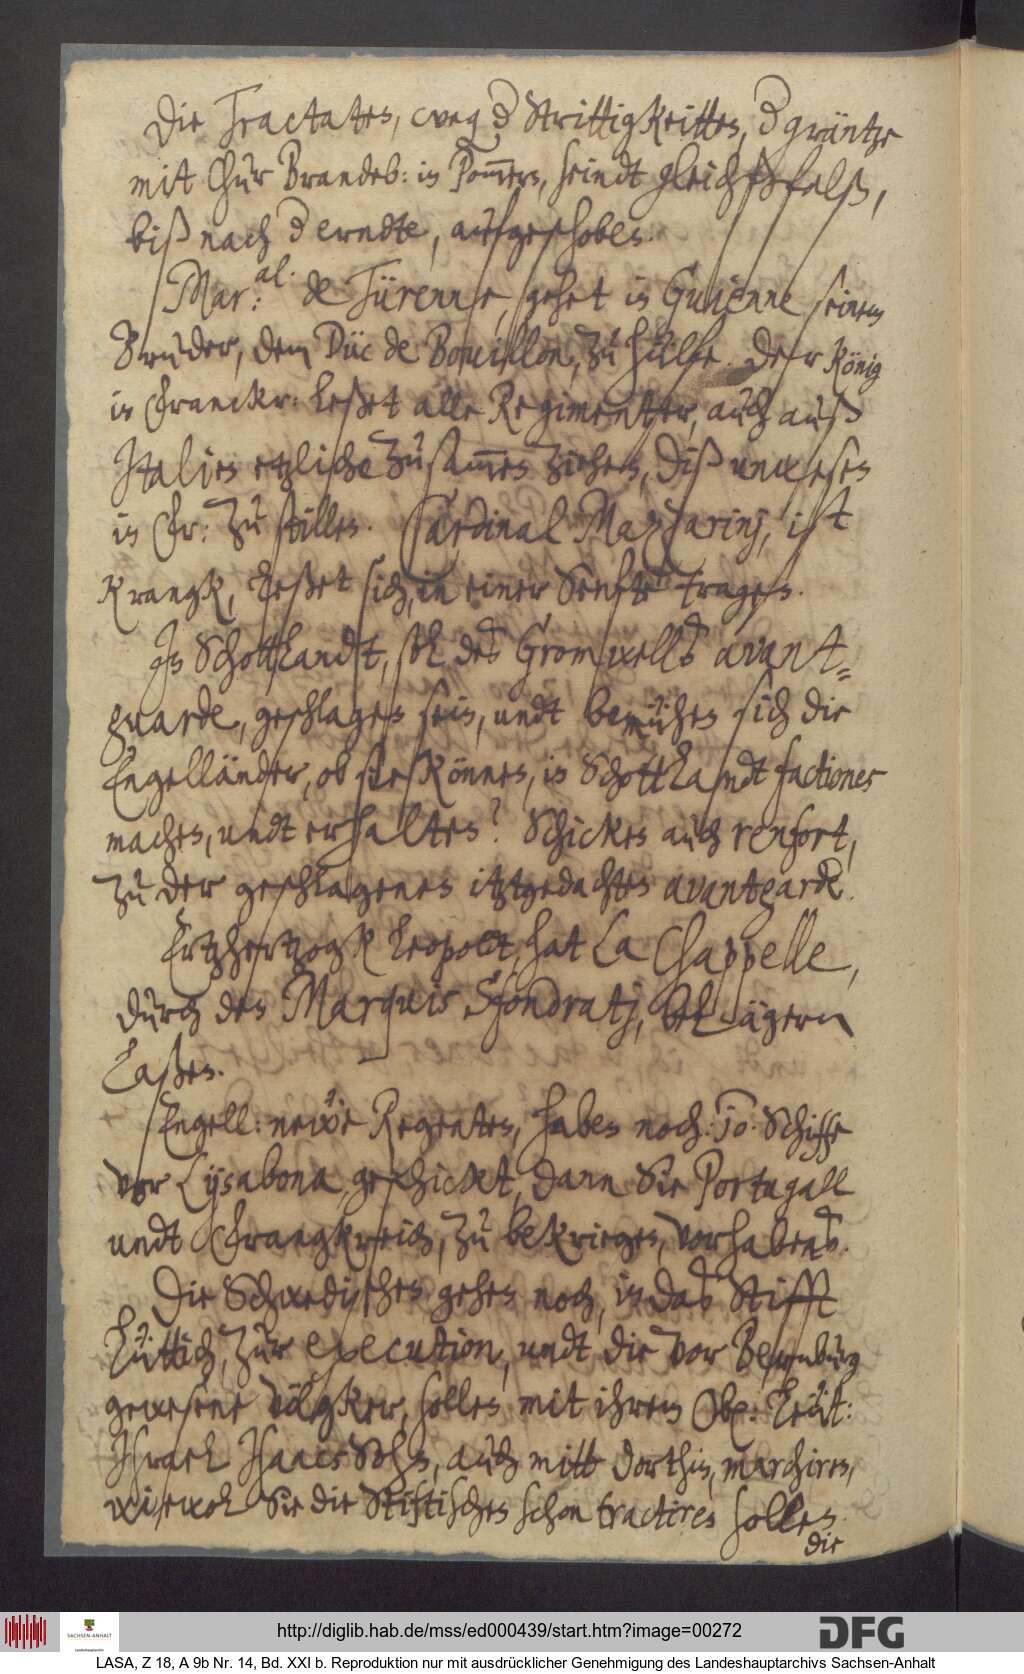 Die Tractaten, weg. d Strittigkeitten, d gräntze
mit Chur Brandeb: in Pom̄ern, seindt gleichsfalß,
biß nach d erndte, aufgeschoben.
Mar:al. de Türenne, gehet in Guienne seinem
Bruder, dem Düc de Bouillon, zu hülfe. Der König
in Franckr: leßet alle Regimenter, auch auß
Italien etzliche zusam̄en ziehen, diß unwesen
in Fr: zu stillen. Cardinal Mazzarinj, ist
Krangk, leßet sich, in einer Senfte tragen.
In Schottlandt, sol des Gromwells avant-
guarde, geschlagen sein, undt bemühen sich die
Engelländer, ob sie können, in Schottlandt factiones
machen, undt erhalten? Schicken auch renfort,
zu der geschlagenen itztgedachten avantgarde.
Ertzhertzogk Leopoldt, hat La Chappelle,
durch den Marquis Sfondratj, belägern
laßen.
Engell: newe Regenten, haben noch: 10. Schiffe
vor Lysabona, geschickt, dann Sie Portugall
undt Frangkreich, zu bekriegen, vorhabens.
Die Schwedischen gehen noch, in das Stifft
Lüttich, zur execution, undt die vor Bernburg
gewesene völgker, sollen mit ihrem Ob: Leüt:
Israel Isaacs Sohn, auch mitt dorthin, marchiren,
wiewol Sie die Stiftischen schon tractiren sollen.
die
http://diglib.hab.de/mss/ed000439/start.htm?image=00272
SACHSEN-ANHALT
DFG
LASA, Z 18, A 9b Nr. 14, Bd. XXI b. Reproduktion nur mit ausdrücklicher Genehmigung des Landeshauptarchivs Sachsen-Anhalt